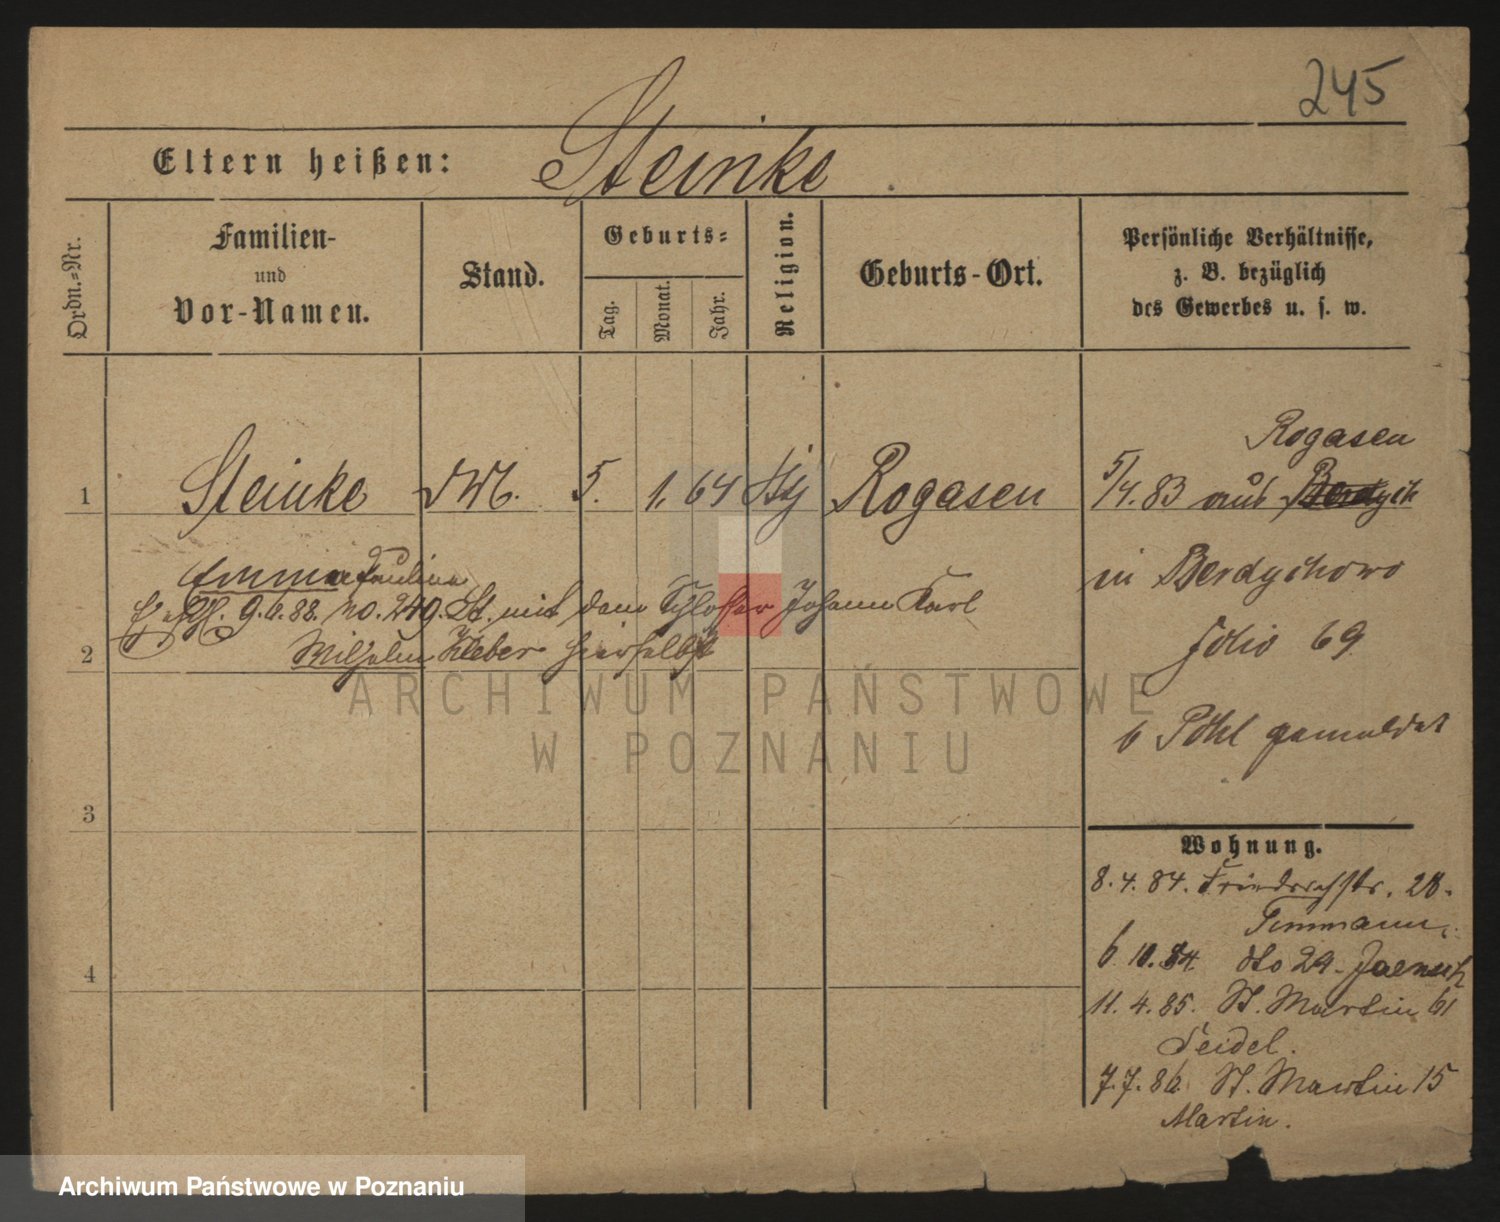 245
Eltern heißen: Steinke
Ordn.-Nr.
Familien-
und
Vor-Namen.
Stand.
Geburts-
Tag.
Monat.
Jahr.
Religion.
Geburts-Ort.
Persönliche Verhältnisse,
z. B. bezüglich
des Gewerbes u. s. w.
Rogasen
1 Steinke 5. 1. 64 Rogasen 5/4. 83 aus
Emma Pauline
in Berdychowo
9.6.88. no. 249. St. mit dem Schlosser Johann Karl
2 Wilhelm Kleber hierselbst
folio 69
gemeldet
3
4
Wohnung.
8. 4. 84. Friedrichstr. 28.
Timmann
6. 10. 84. dto 29. Jaensch
11. 4. 85. St. Martin 61
Seidel.
7. 7. 86. St. Martin 15
Martin.
ARCHIWUM PAŃSTWOWE
W POZNANIU
Archiwum Państwowe w Poznaniu